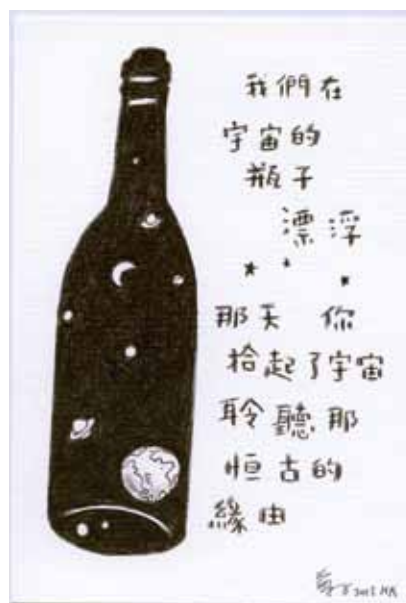 我們在
宇宙的
瓶子
漂浮
那天 你
拾起了宇宙
聆聽那
恒古的
緣由